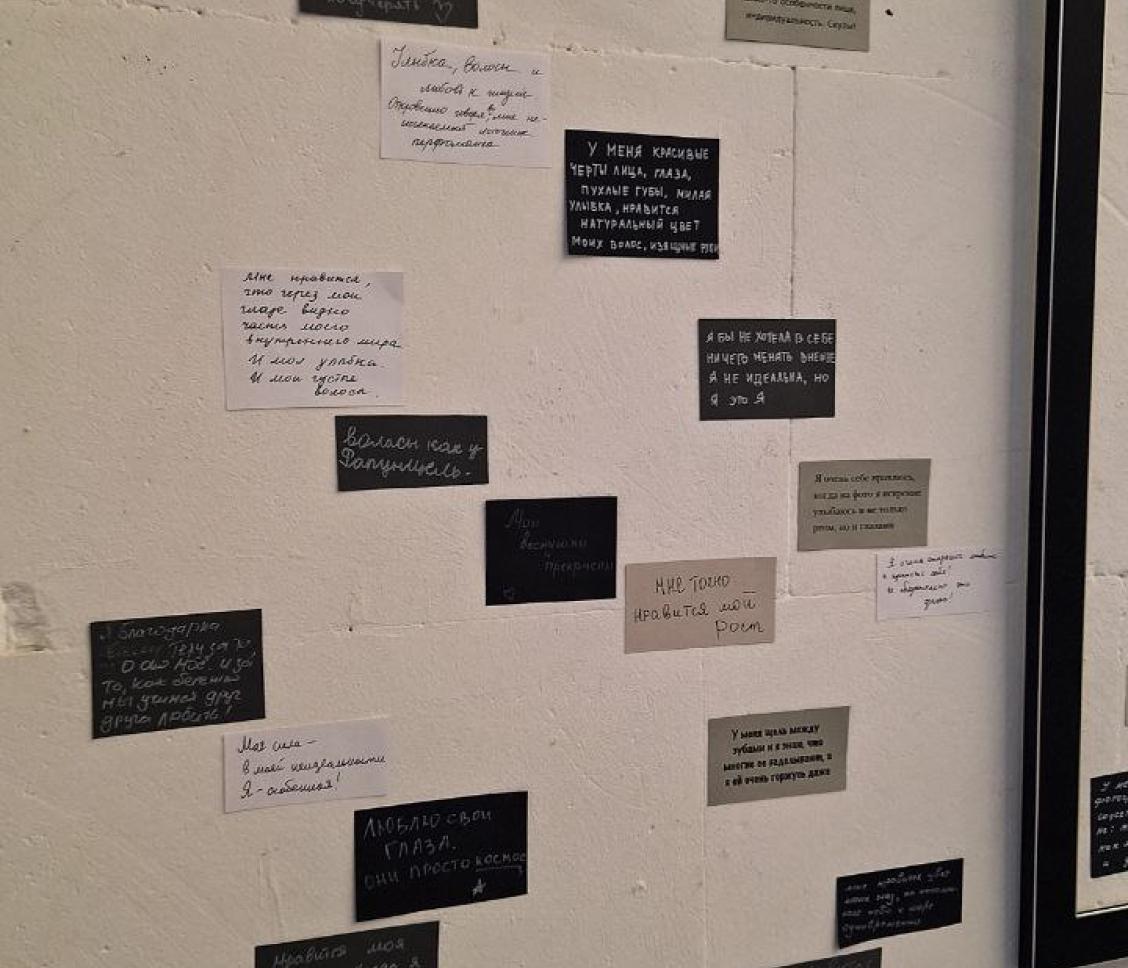 поддержать ♡
особенности лица,
индивидуальность. Скулы!
Улыбка, волосы и
любовь к людям
Откровенно говоря, в мне не-
перфоманса
У МЕНЯ КРАСИВЫЕ
ЧЕРТЫ ЛИЦА, ГЛАЗА,
ПУХЛЫЕ ГУБЫ, МИЛАЯ
УЛЫБКА, НРАВИТСЯ
НАТУРАЛЬНЫЙ ЦВЕТ
МОИХ ВОЛОС, ИЗЯЩНЫЕ РУКИ
Мне нравится,
что через мои
глаза видно
часть моего
внутреннего мира.
И моя улыбка.
И мои густые
волосы.
Я БЫ НЕ ХОТЕЛА В СЕБЕ
НИЧЕГО МЕНЯТЬ ВНЕШНЕ
Я НЕ ИДЕАЛЬНА, НО
Я ЭТО Я
Волосы как у
Рапунцель.
Я очень себе нравлюсь,
когда на фото я искренне
улыбаюсь и не только
ртом, но и глазами
Мои
веснушки
прекрасны
♡
МНЕ ТОЧНО
НРАВИТСЯ МОЙ
РОСТ
Я очень
Я благодарна
телу за
то, как бережно
мы учимся друг
друга любить!
Моя сила –
в моей неидеальности
Я – особенная!
У меня щель между
зубами и я знаю, что
многие ее заделывают, а
я ей очень горжусь даже
ЛЮБЛЮ СВОИ
ГЛАЗА.
ОНИ ПРОСТО КОСМОС
мне нравится цвет
моих глаз,
одновременно
Нравится моя